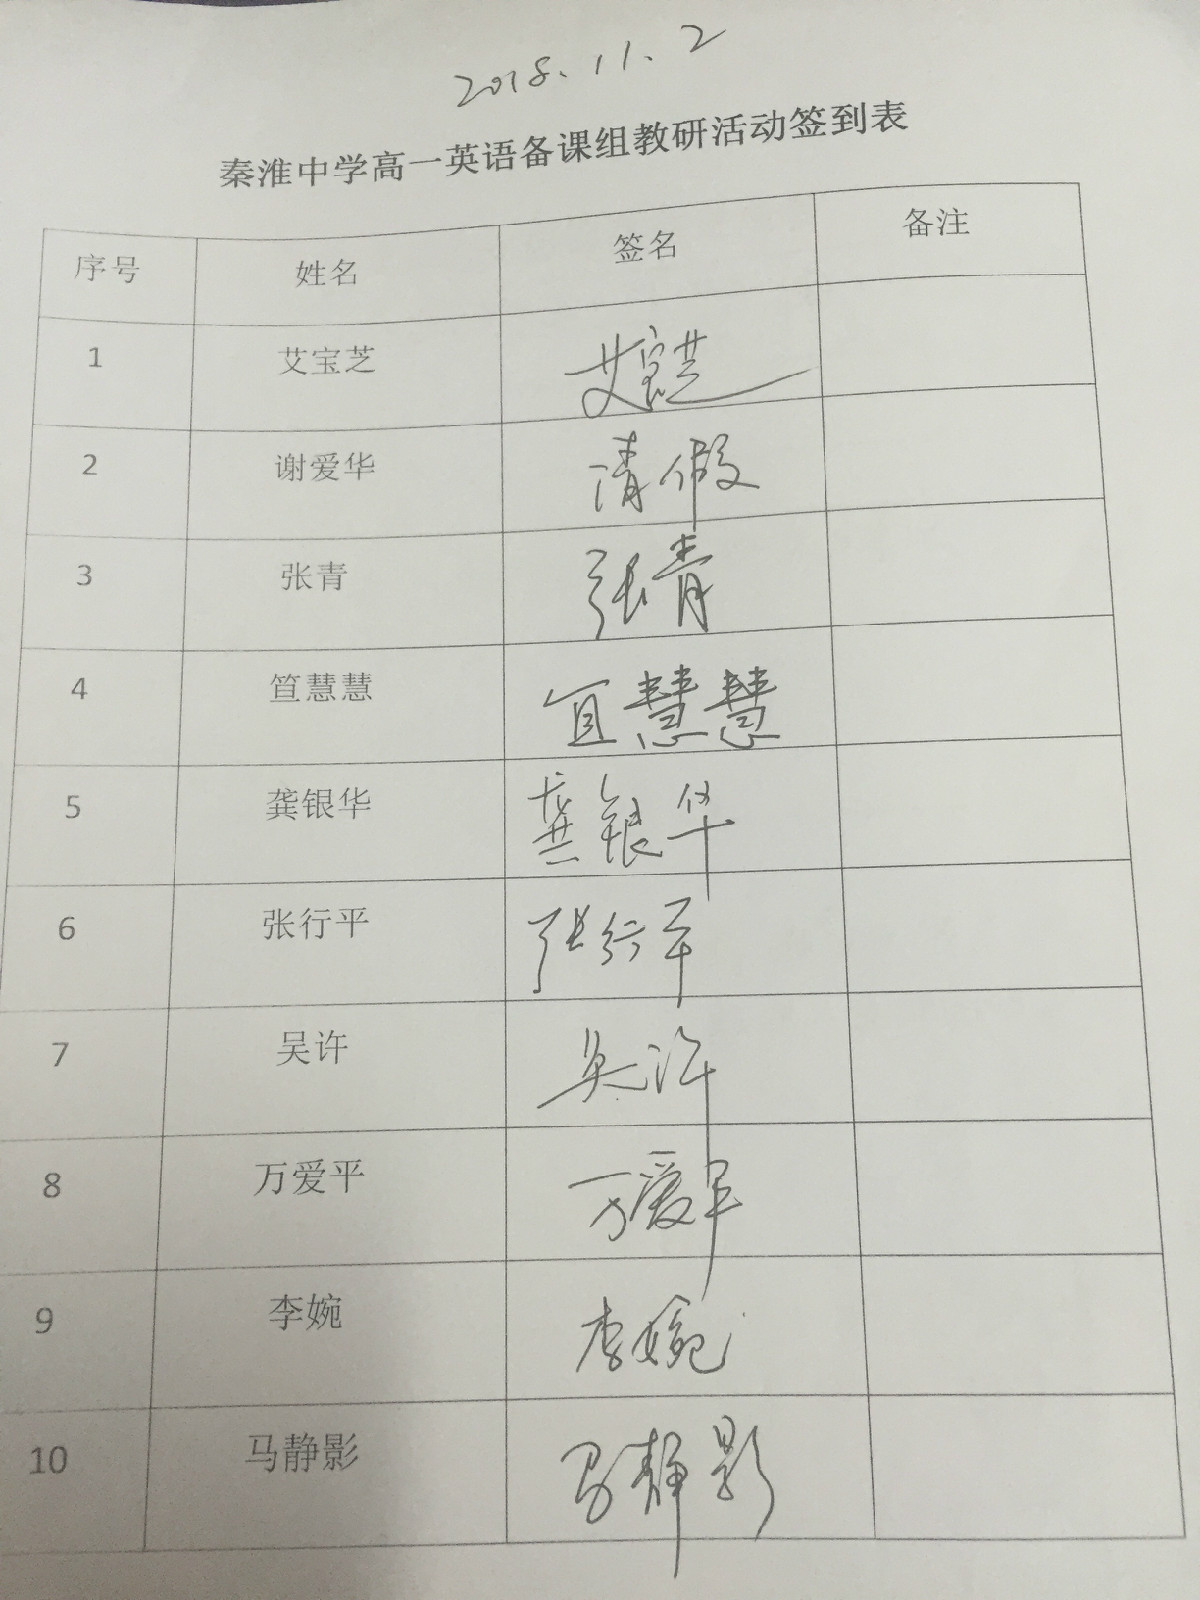 2018.11.2
秦淮中学高一英语备课组教研活动签到表
序号 姓名 签名 备注
1 艾宝芝 艾宝芝
2 谢爱华 请假
3 张青 张青
4 笪慧慧 笪慧慧
5 龚银华 龚银华
6 张行平 张行平
7 吴许 吴许
8 万爱平 万爱平
9 李婉 李婉
10 马静影 马静影